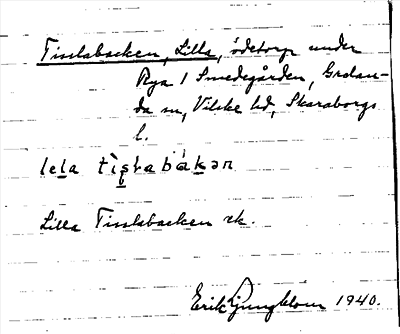 Tisslabacken, Lilla, ödetorp under
Rya 1 Smedegården, Grolan-
da sn, Vilske hd, Skaraborgs
l.
lela tìslabàkən
Lilla Tisslabacken rk.
Erik Ljungblom 1940.